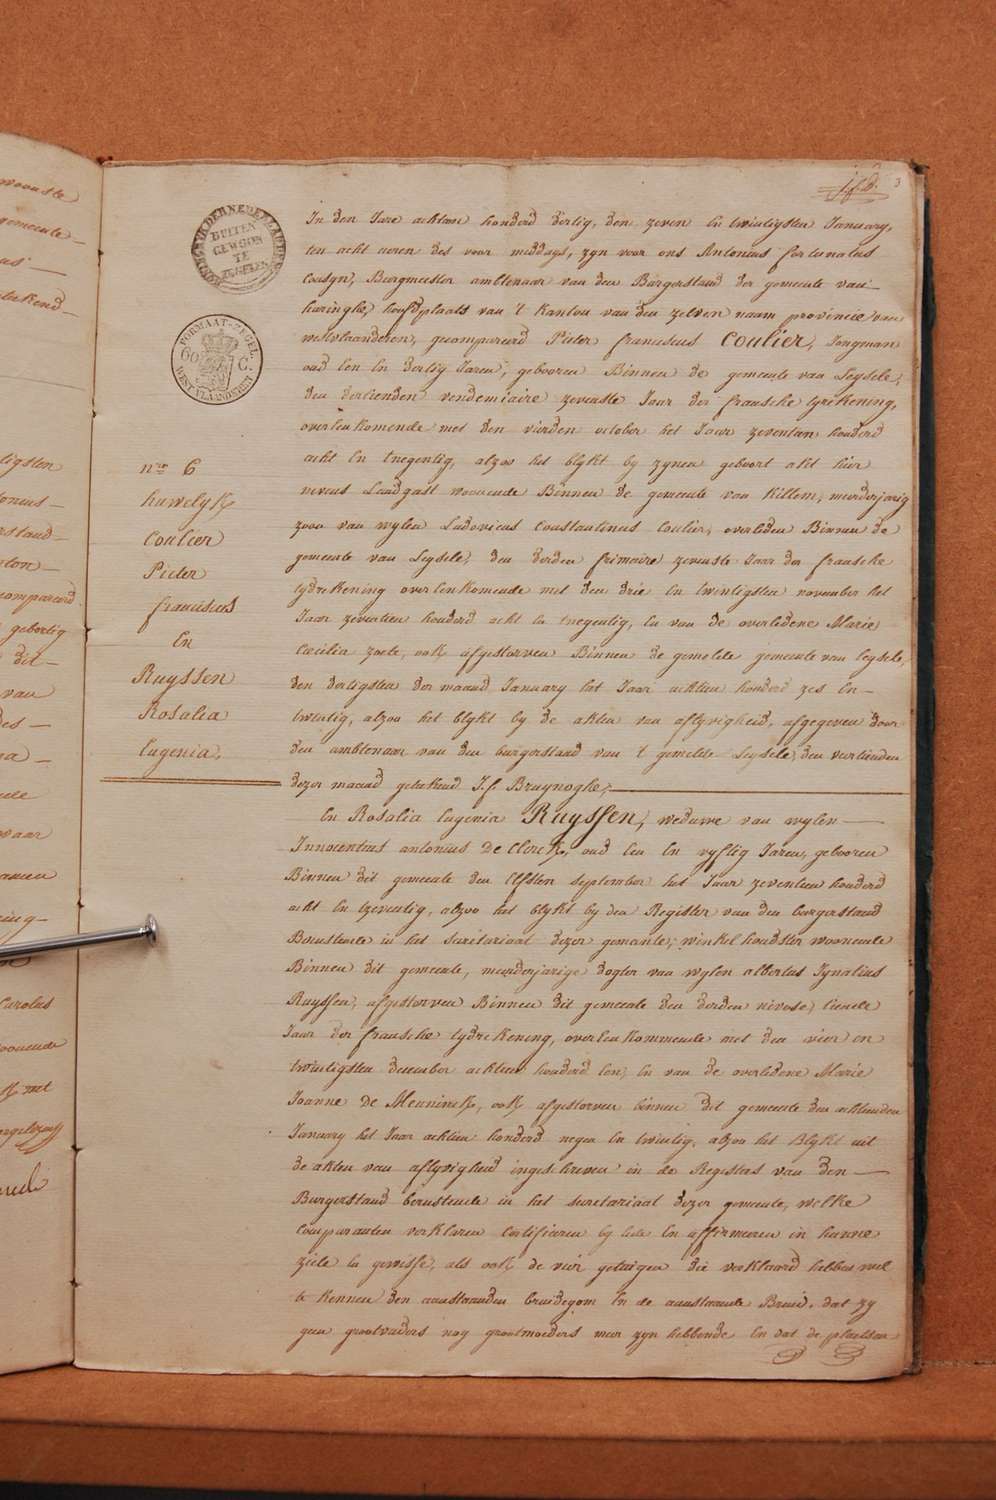 3
In den Jare achtien honderd dertig, den zeven en twintigsten January,
ten acht ueren des voor middags, zyn voor ons Antonius fortunatus
Cousyn, Burgmeester ambtenaar van den Burgerstand der gemeente van
haringhe, hoofdplaats van 't kanton van den zelven naam provincie van
westvlaanderen, gecompareerd Pieter franciscus Coulier, Jongman
oud een en dertig Jaren, gebooren Binnen de gemeente van Leysele,
den derthienden vendemiaire zevenste Jaar der fransche tydrekening,
overeenkomende met den vierden october het Jaar zeventien honderd
acht en tnegentig, alzoo het blykt by zynen geboort akt hier
nevens Landgast woonende Binnen de gemeente van Killem, meerderjarig
zoon van wylen Ludovicus Constantinus Coulier, overleden Binnen de
gemeente van Leysele, den derden frimaire zevenste Jaar der fransche
tydrekening overeenkomende met den drie en twintigsten november het
Jaar zeventien honderd acht en tnegentig, en van de overledene Marie
Cæcilia zoete, ook afgestorven Binnen de gemelde gemeente van Leysele,
den dertigsten der maand January het Jaar achtien honderd zes en
twintig, alzoo het blykt by de akten van aflyvigheid, afgegeven door
den ambtenaar van den burgerstand van 't gemelde Leysele, den veertienden
dezer maand geteekend J.f Bruynoghe,
En Rosalia Eugenia Ruyssen, weduwe van wylen
Innocentius antonius De Clerck, oud een en vyftig Jaren, gebooren
Binnen dit gemeente den elfsten september het Jaar zeventien honderd
acht en tzeventig, alzoo het blykt by den Register van den burgerstand
Berustende in het secretariaat dezer gemeente, winkelhoudster woonende
Binnen dit gemeente, meerderjarige dogter van wylen albertus Ignatius
Ruyssen, afgestorven Binnen dit gemeente den derden nivose, tiende
Jaar der fransche tydrekening, overeenkommende met den vier en
twintigsten december achtien honderd een, en van de overledene Marie
Joanne De Meuninck, ook afgestorven binnen dit gemeente den achtienden
January het Jaar achtien honderd negen en twintig, alzoo het Blykt uit
de akten van aflyvigheid ingeschreven in de Registers van den
Burgerstand berustende in het secretariaat dezer gemeente, welke
Comparanten verklaren Certifieren by eede en affirmeren in hunne
ziele en gewisse, als ook de vier getuigen die verklaard hebben wel
te kennen den aanstaanden bruidegom en de aanstaande Bruid, dat zy
geen grootvaders nog grootmoeders meer zyn hebbende en dat de plaetsen
nro 6
huwelyk
Coulier
Pieter
franciscus
En
Ruyssen
Rosalia
Eugenia.
BUITEN
GEWOON
TE
ZEGELEN
FORMAAT-ZEGEL.
60 C.
WEST VLAANDEREN